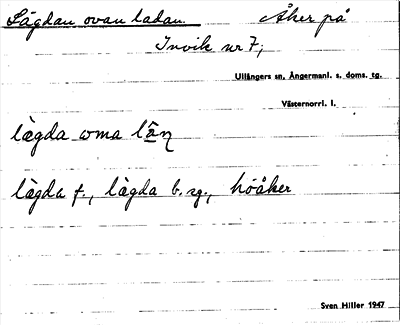 Lägdan ovan ladan. Åker på
Invik nr 7,
Ullångers sn, Ångermanl. s. doms. tg.
Västernorrl. l.
lägda oma lān
lägda f., lägda b. sg., höåker
Sven Hiller 1947